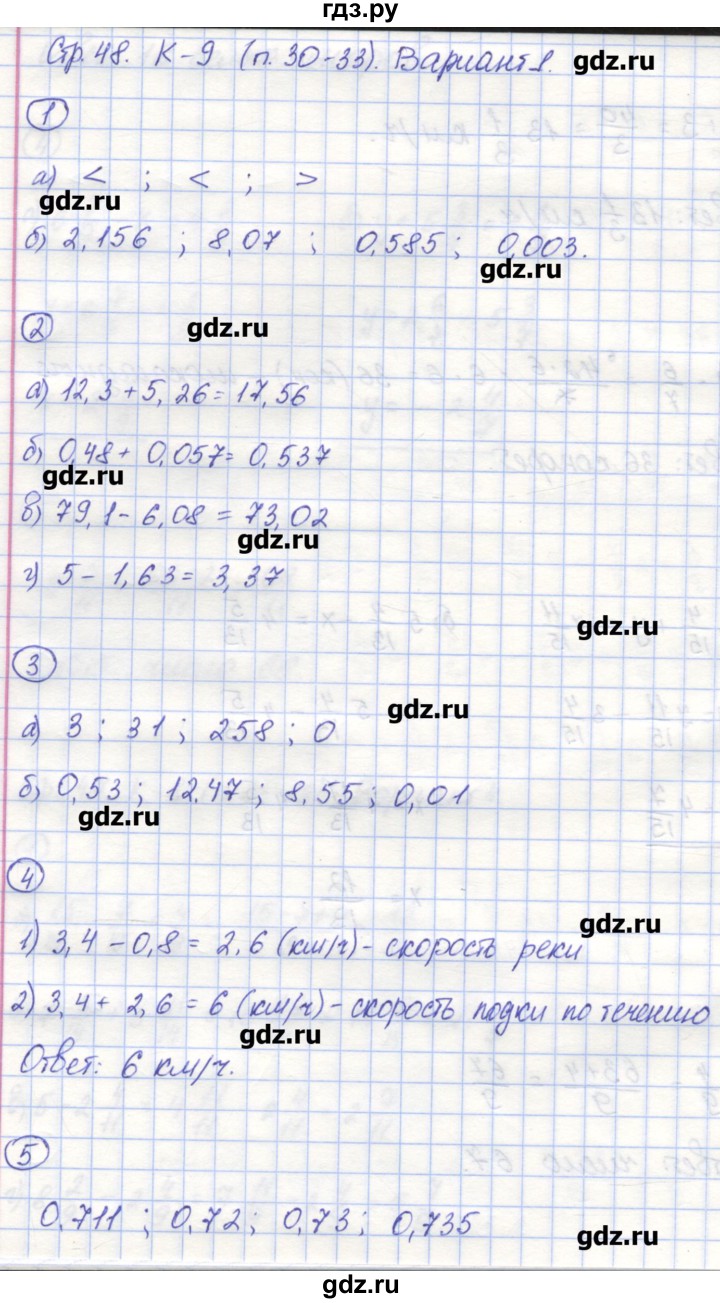 гдз.ру
Стр. 48. К-9 (п. 30-33). Вариант 1. gdz.ru
1
а) < ; < ; >
gdz.ru
б) 2,156 ; 8,07 ; 0,585 ; 0,003.
gdz.ru
2 gdz.ru
а) 12,3 + 5,26 = 17,56
б) 0,48 + 0,057 = 0,537
gdz.ru
в) 79,1 - 6,08 = 73,02
gdz.ru
г) 5 - 1,63 = 3,37
gdz.ru
3
gdz.ru
а) 3 ; 31 ; 258 ; 0
б) 0,53 ; 12,47 ; 8,55 ; 0,01
gdz.ru
4
gdz.ru
1) 3,4 - 0,8 = 2,6 (км/ч) - скорость реки
2) 3,4 + 2,6 = 6 (км/ч) - скорость лодки по течению
gdz.ru
Ответ: 6 км/ч.
5
0,711 ; 0,72 ; 0,73 ; 0,735
gdz.ru
gdz.ru